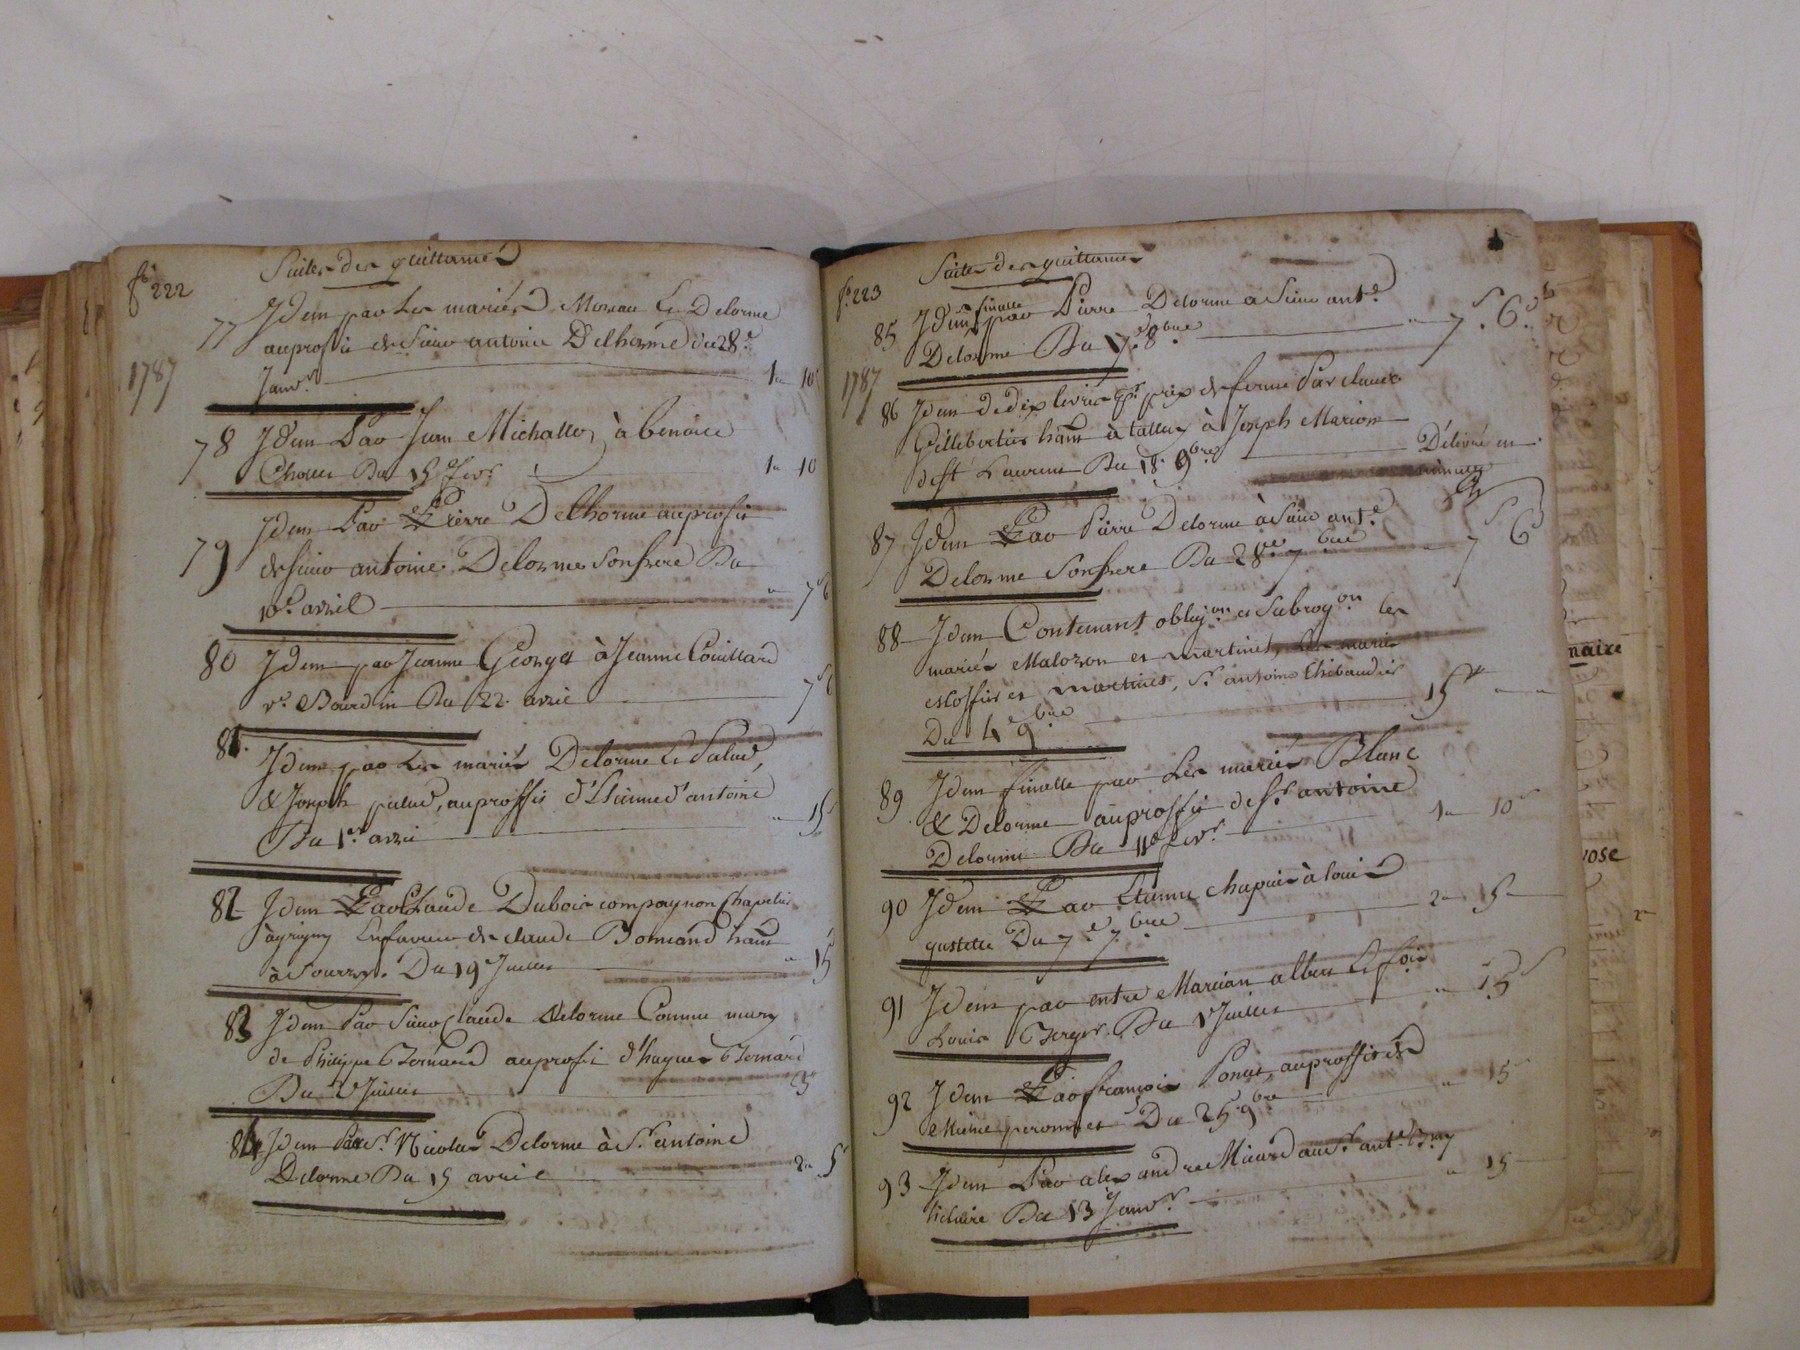 f.° 222
Suittes des quittances
77 Idem par Les mariés Moreau Et Delorme
au profit de Sieur antoine Delhorme du 28.e
1787
Janv.r 1 " 10
78 Idem Par Jean Michallon à benoite
Chollet Du 15 fevr. 1 " 10
Idem Par Pierre Delhorme au profit
79 de sieur antoine Delorme Son frere Du
10.e avril " 7 6
80 Idem par Jeanne George à Jeanne Couillard
v.e Bourdin Du 22 avril 7 6
81. Idem par Les mariés Delorme Et Palud,
& Joseph palud, au proffit d'Etienne d'antoine
Du 1.er avril " 15
82 Idem Par Claude Dubois compagnon Chapelier
à grigny En faveur de claude Bonnard hant
à Sourzy. Du 19 Juillet " 15
83 Idem Par Sieur Claude Delorme Comme mary
de Philippe Bonnard au profit d'hugues Bonnard
Du 2 Juillet 15
84 Idem Par S.r Nicolas Delorme à S.r antoine
Delorme Du 15 avril 2 " 5
f.° 223
Suittes des quittances
finalle
85 Idem par Pierre Delorme a Sieur ant.e
Delorme Du 17.e 8bre " 7 s. 6 d
1787
86 Idem de dix livres p.r prix de ferme Par claude
Gillibertier hant à talluy à Joseph Marion
de St Laurent Du 18. 9bre Délivré en
minutte
87 Idem Par Pierre Delorme à Sieur ant.e
Delorme Son frere Du 28.e 7bre " 7 s 6
88 Idem Contenant oblig.on et Subrog.on les
mariés Malozon et martinet,
et martinet, S.r antoine thibaudier
Du 4 9bre 15 " "
89 Idem finalle par Les mariés Blanc
& Delorme au proffit de S.r antoine
Delorme Du 11.e fevr. 1 " 10 s
90 Idem Par Etienne Chapuis à louis
gustelle Du 7.e 7bre 2 " 5
91 Idem par entre Marian albert Et foi
Louis Berger. Du 1 Juillet " 15 s
92 Idem Par françois Ponut, au proffit d'
Etienne peronnet Du 25. 9bre " 15
93 Idem Par alexandre Micard au S.r ant.e Bruy
ticlaire Du 13 Janv.r " 15
naire
vose